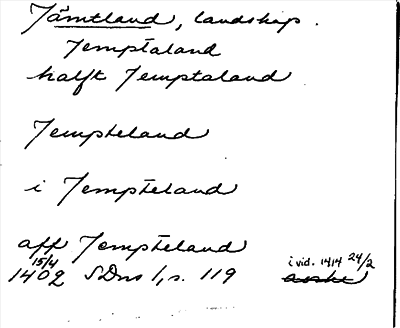 Jämtland, landskap.
Jemptaland
halft Jemptaland
Jempteland
i Jempteland
aff Jempteland
15/4 i vid. 1414 24/2
1402 SDns 1, s. 119